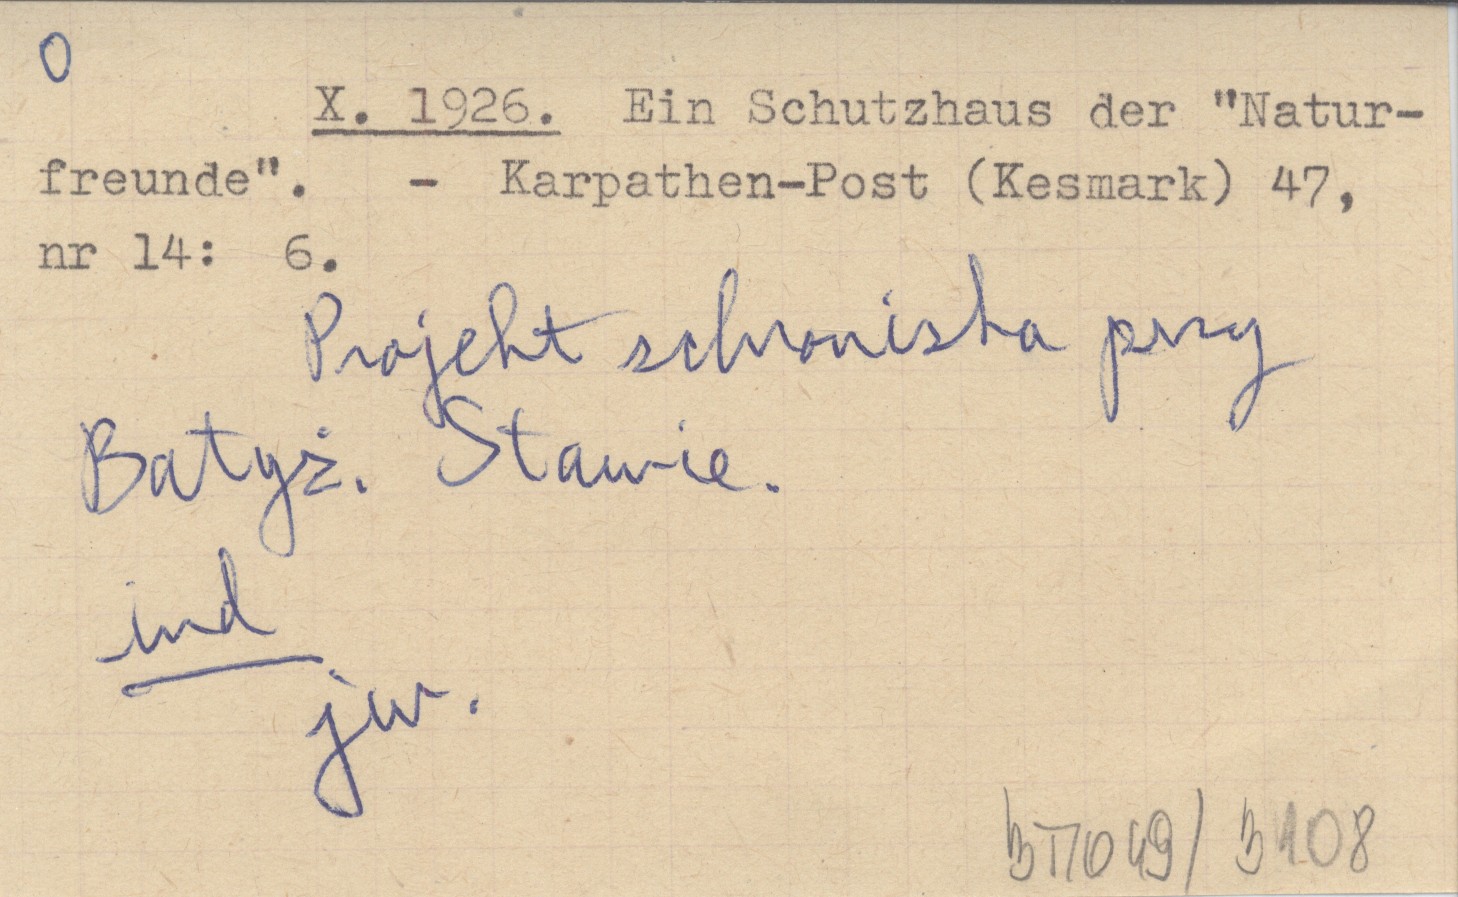 0
X. 1926. Ein Schutzhaus der "Natur-
freunde". - Karpathen-Post (Kesmark) 47,
nr 14: 6.
Projekt schroniska przy
Batyż. Stawie.
ind
jw.
108